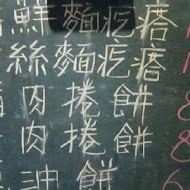 鮮麵疙瘩
絲麵疙瘩
肉捲餅
肉捲餅
油餅